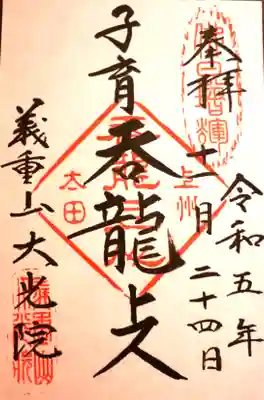 奉拝
令和五年
十一月二十四日
子育呑龍上人
上州
太田
義重山大光院